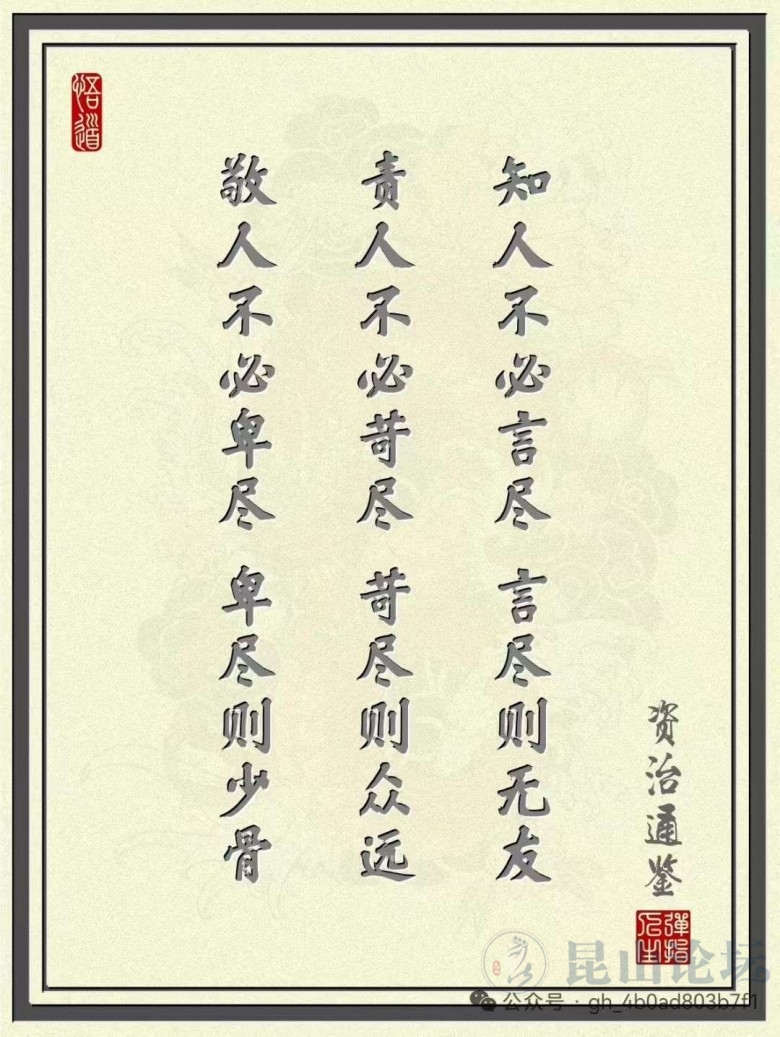 资治通鉴
知人不必言尽 言尽则无友
责人不必苛尽 苛尽则众远
敬人不必卑尽 卑尽则少骨
悟道
弹指人生
昆山论坛
公众号·gh_4b0ad803b7f1